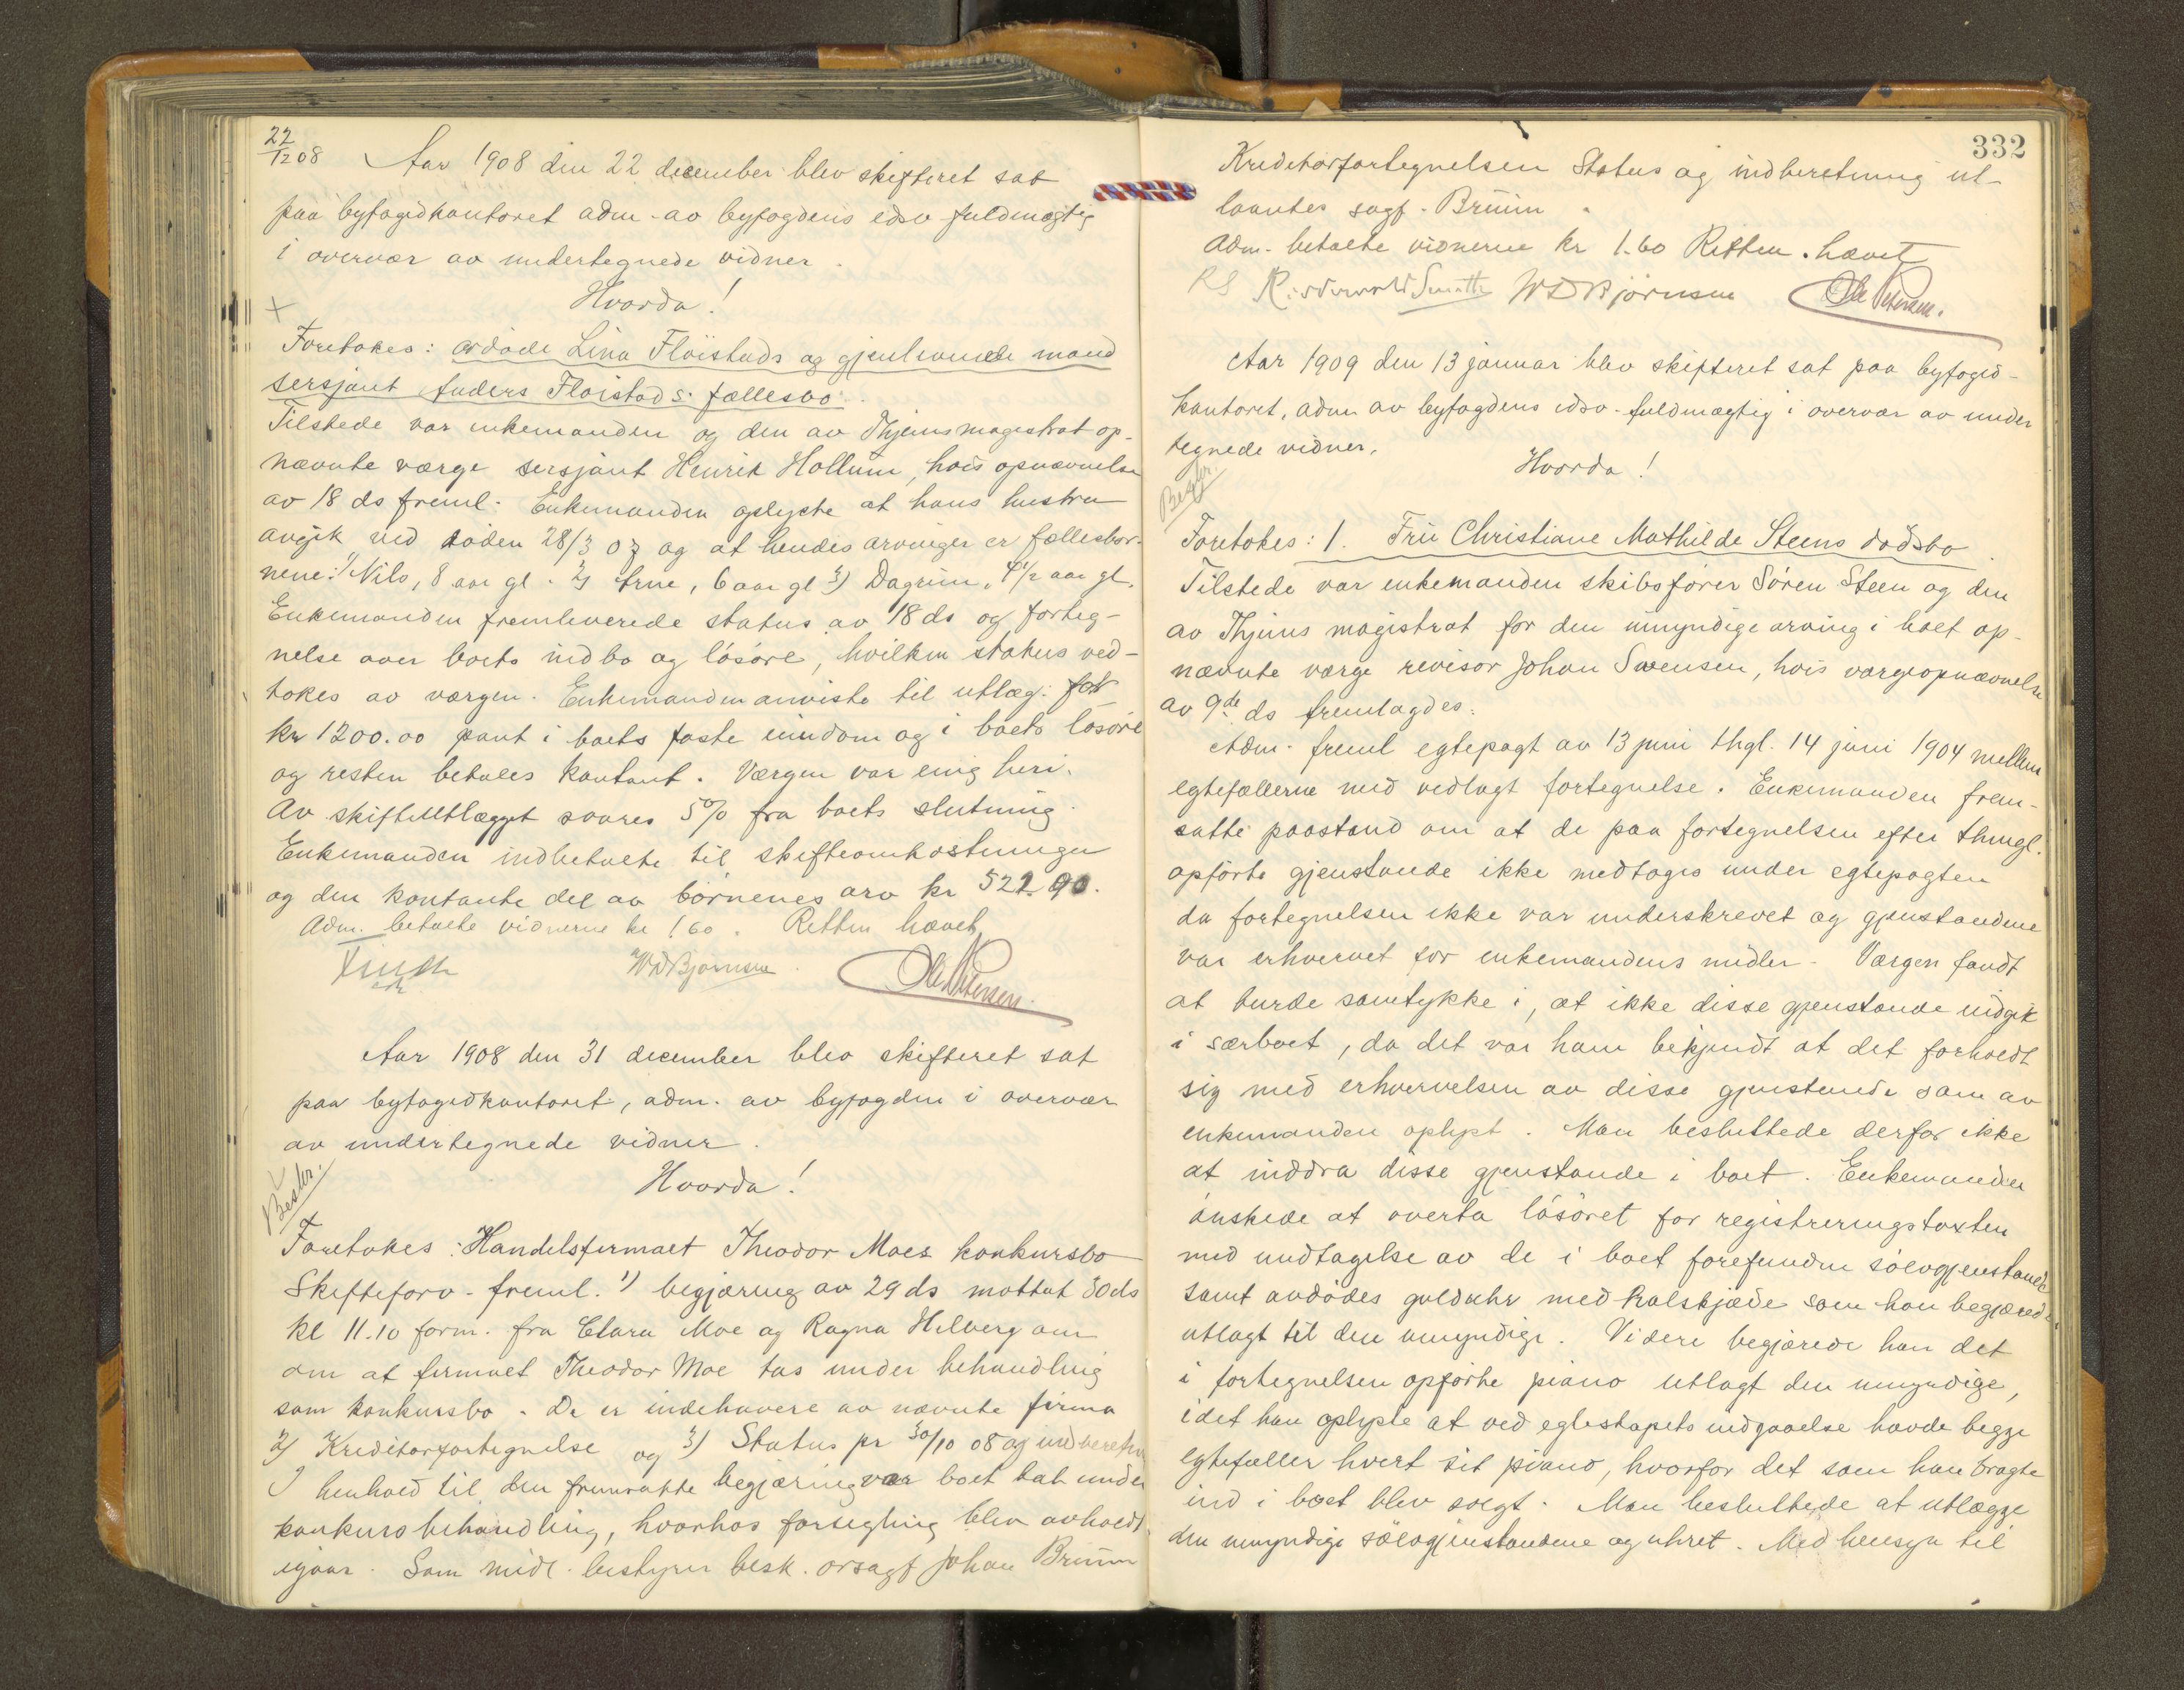 22/12 08 Aar 1908 den 22 december blev skifteret sat
paa byfogedkontoret adm. av byfogdens edsv. fuldmægtig
i overvær av undertegnede vidner.
Hvorda!
Foretokes: avdøde Lina Flöistads og gjenlevende mand
sersjant Anders Flöistads fællesbo.
Tilstede var enkemanden og den av Thjems magistrat op-
nævnte værge sersjant Henrik Hollum, hvis opnævnelse
av 18 ds freml. Enkemanden oplyste at hans hustru
avgik ved döden 28/3 07 og at hendes arvinger er fællesbør-
nene: 1) Nils, 8 aar gl. 2) Arne, 6 aar gl 3) Dagrun, 4 1/2 aar gl.
Enkemanden fremleverede status av 18 ds og forteg-
nelse over boets indbo og lösöre, hvilken status ved-
tokes av værgen. Enkemanden anviste til utlæg: for
kr 1200.00 pant i boets faste eiendom og i boets lösöre
og resten betales kontant. Værgen var enig heri.
Av skifteutlægget svares 5% fra boets slutning.
Enkemanden indbetalte til skifteomkostninger
og den kontante del av börnenes arv kr 522.90.
Adm. betalte vidnerne kr 1.60. Retten hævet
WDBjörnsen Ole Petersen.
Aar 1908 den 31 december blev skifteret sat
paa byfogedkontoret, adm. av byfogden i overvær
av undertegnede vidner.
Hvorda!
Besør.
Foretokes: Handelsfirmaet Theodor Moes konkursbo
Skifteforv. freml. 1) begjæring av 29 ds mottat 30 ds
kl 11.10 form. fra Clara Moe og Ragna Helberg om
om at firmaet Theodor Moe tas under behandling
som konkursbo. De er indehavere av nævnte firma
2) Kreditorfortegnelse og 3) Status pr 30/10 08 og indberetn
I henhold til den fremsatte begjæring var boet tat under
konkursbehandling, hvorhos forsegling blev avholdt
igaar. Som midl. bestyrer besk. orsagf Johan Bruun
332
Kreditorfortegnelsen Status og indberetning ut-
laantes sagf. Bruun.
Adm. betalte vidnerne kr 1.60 Retten hævet
RS Smith WDBjörnsen Ole Petersen.
Aar 1909 den 13 januar blev skifteret sat paa byfoged-
kontoret, adm av byfogdens edsv. fuldmægtig i overvær av under
tegnede vidner.
Hvorda!
Besør.
Foretokes: 1. Fru Christiane Mathilde Steens dødsbo
Tilstede var enkemanden skibsfører Sören Steen og den
av Thjems magistrat for den umyndige arving i boet op-
nævnte værge revisor Johan Svensen, hvis værgeopnævnelse
av 9de ds fremlagdes.
Adm. freml egtepagt av 13 juni thgl. 14 juni 1904 mellem
egtefællerne med vedlagt fortegnelse. Enkemanden frem-
satte paastand om at de paa fortegnelsen efter thingl.
opförte gjenstande ikke medtages under egtepagten
da fortegnelsen ikke var underskrevet og gjenstandene
var erhvervet for enkemandens midler. Værgen fandt
at burde samtykke i, at ikke disse gjenstande indgik
i særboet, da det var ham bekjendt at det forholdt
sig med erhvervelsen av disse gjenstande som av
enkemanden oplyst. Man besluttede derfor ikke
at inddra disse gjenstande i boet. Enkemanden
önskede at overta lösöret for registreringstaxten
med undtagelse av de i boet forefundne sölvgjenstande
samt avdödes gulduhr med halskjæde som han begjærede
utlagt til den umyndige. Videre begjærede han det
i fortegnelsen opförte piano utlagt den umyndige,
idet han oplyste at ved egteskapets indgaaelse havde begge
egtefæller hvert sit piano, hvorfor det som han bragte
ind i boet blev solgt. Man besluttede at utlægge
den umyndige sölvgjenstandene og uhret. Med hensyn til